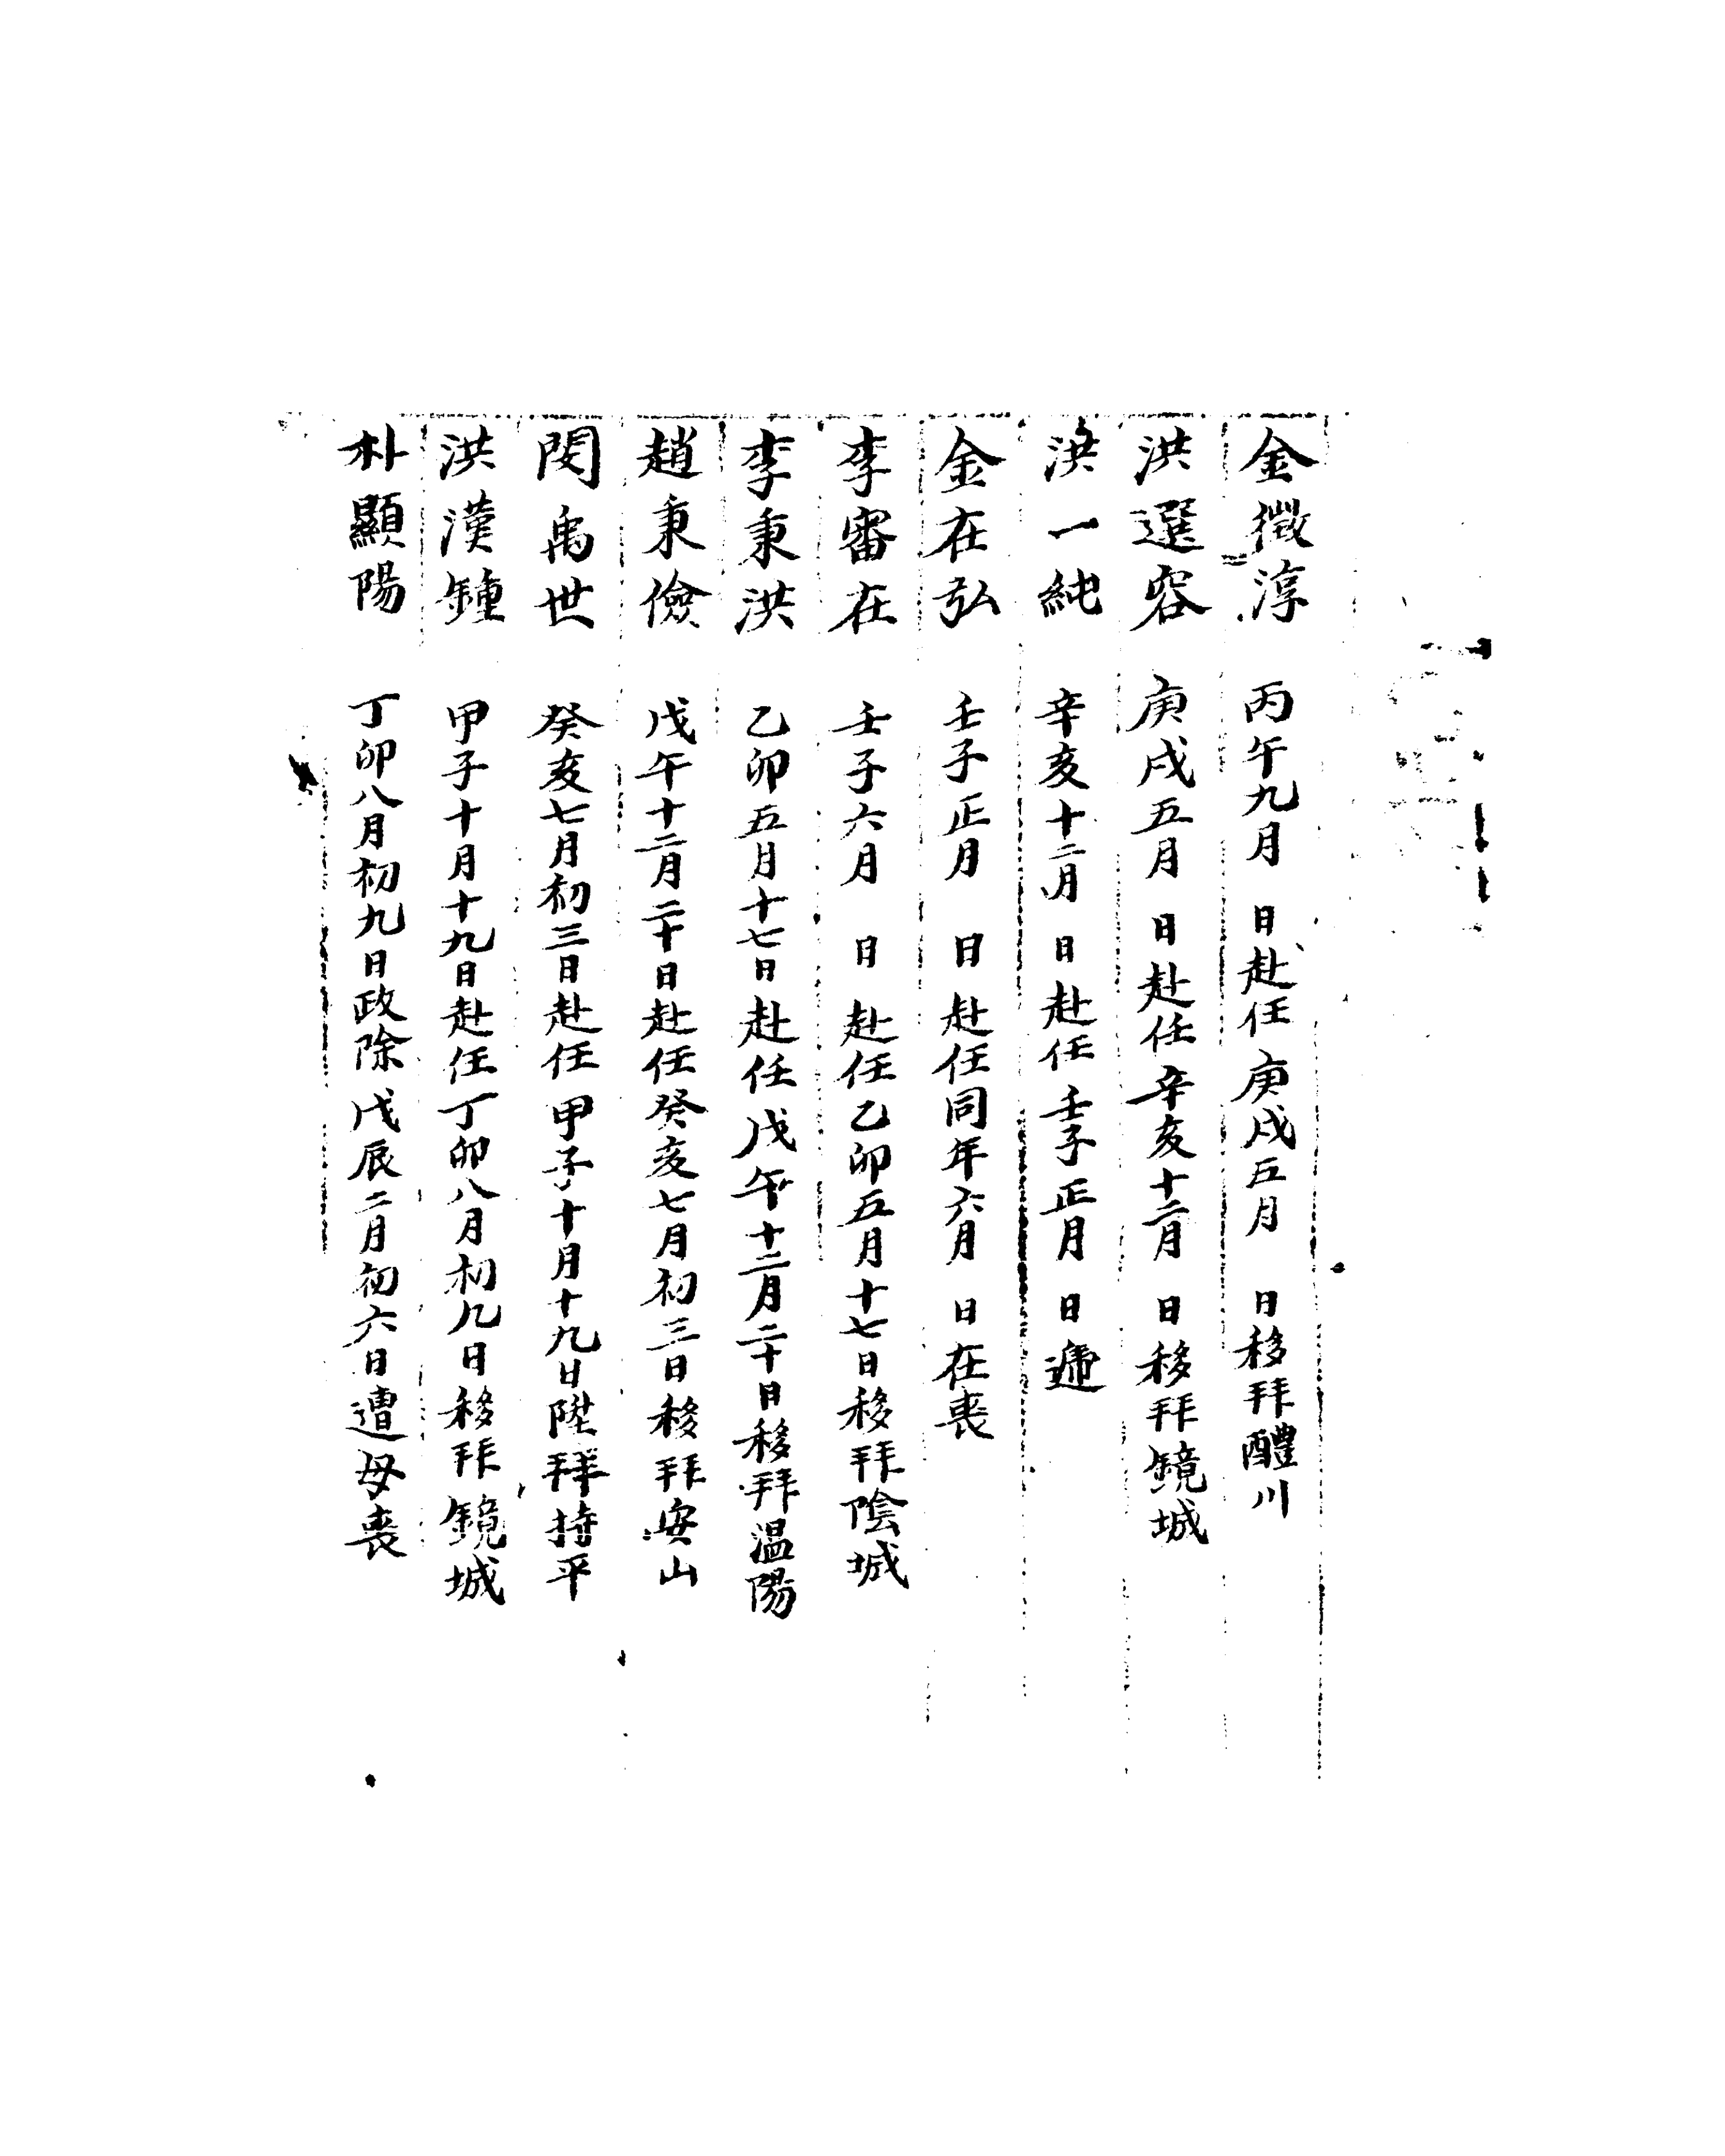 金徵淳 丙午九月 日赴任 庚戌五月 日移拜醴川
洪選容 庚戌五月 日赴任 辛亥十二月 日移拜鏡城
洪一純 辛亥十二月 日赴任 壬子正月 日遞
金在弘 壬子正月 日赴任同年六月 日在喪
李審在 壬子六月 日赴任乙卯五月十七日移拜陰城
李秉洪 乙卯五月十七日赴任戊午十二月二十日移拜温陽
趙秉儉 戊午十二月二十日赴任癸亥七月初三日移拜安山
閔禹世 癸亥七月初三日赴任 甲子十月十九日陞拜持平
洪漢鍾 甲子十月十九日赴任丁卯八月初九日移拜鏡城
朴顯陽 丁卯八月初九日政除戊辰二月初六日遭母喪